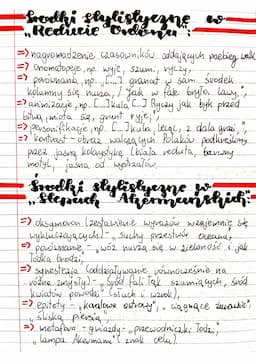 Środki stylistyczne w
"Reducie Ordona":
=> nagromadzenie czasowników oddających przebieg walk
=> onomatopeje, np. wyje, szumi, ryczy,
=> porównania, np. [...] granat w sam środek
kolumny się nurza, / Jak w fale bryła lawy,",
=> animizacje, np. [...] kula [...] Ryczy jak byk przed
bitwą, miota się, grunt ryje,",
=> personifikacje, np. [...] kula, lecąc, z dala grozi,",
=> kontrast - obraz walczących Polaków podkreślony
przez jasną kolorystykę (biała reduta, barwny
motyl, jasna od wystrzałów)
Środki stylistyczne w
"Stepach Akermańskich":
=> oksymoron (zestawienie wyrazów wzajemnie się
wykluczających) - "suchy przestwór oceanu",
=> porównanie - "wóz nurza się w zieloność i jak
łódka brodzi",
=> synestezja (oddziaływanie równocześnie na
różne zmysły) - "Śród fali łąk szumiących, śród
kwiatów powodzi" (słuch i wzrok),
=> epitety - "koralowe ostrowy", "ciągnące żurawie",
"śliska pierś",
=> metafora - gwiazdy - "przewodniczki łodzi",
"lampa Akermanu" (znak celu).